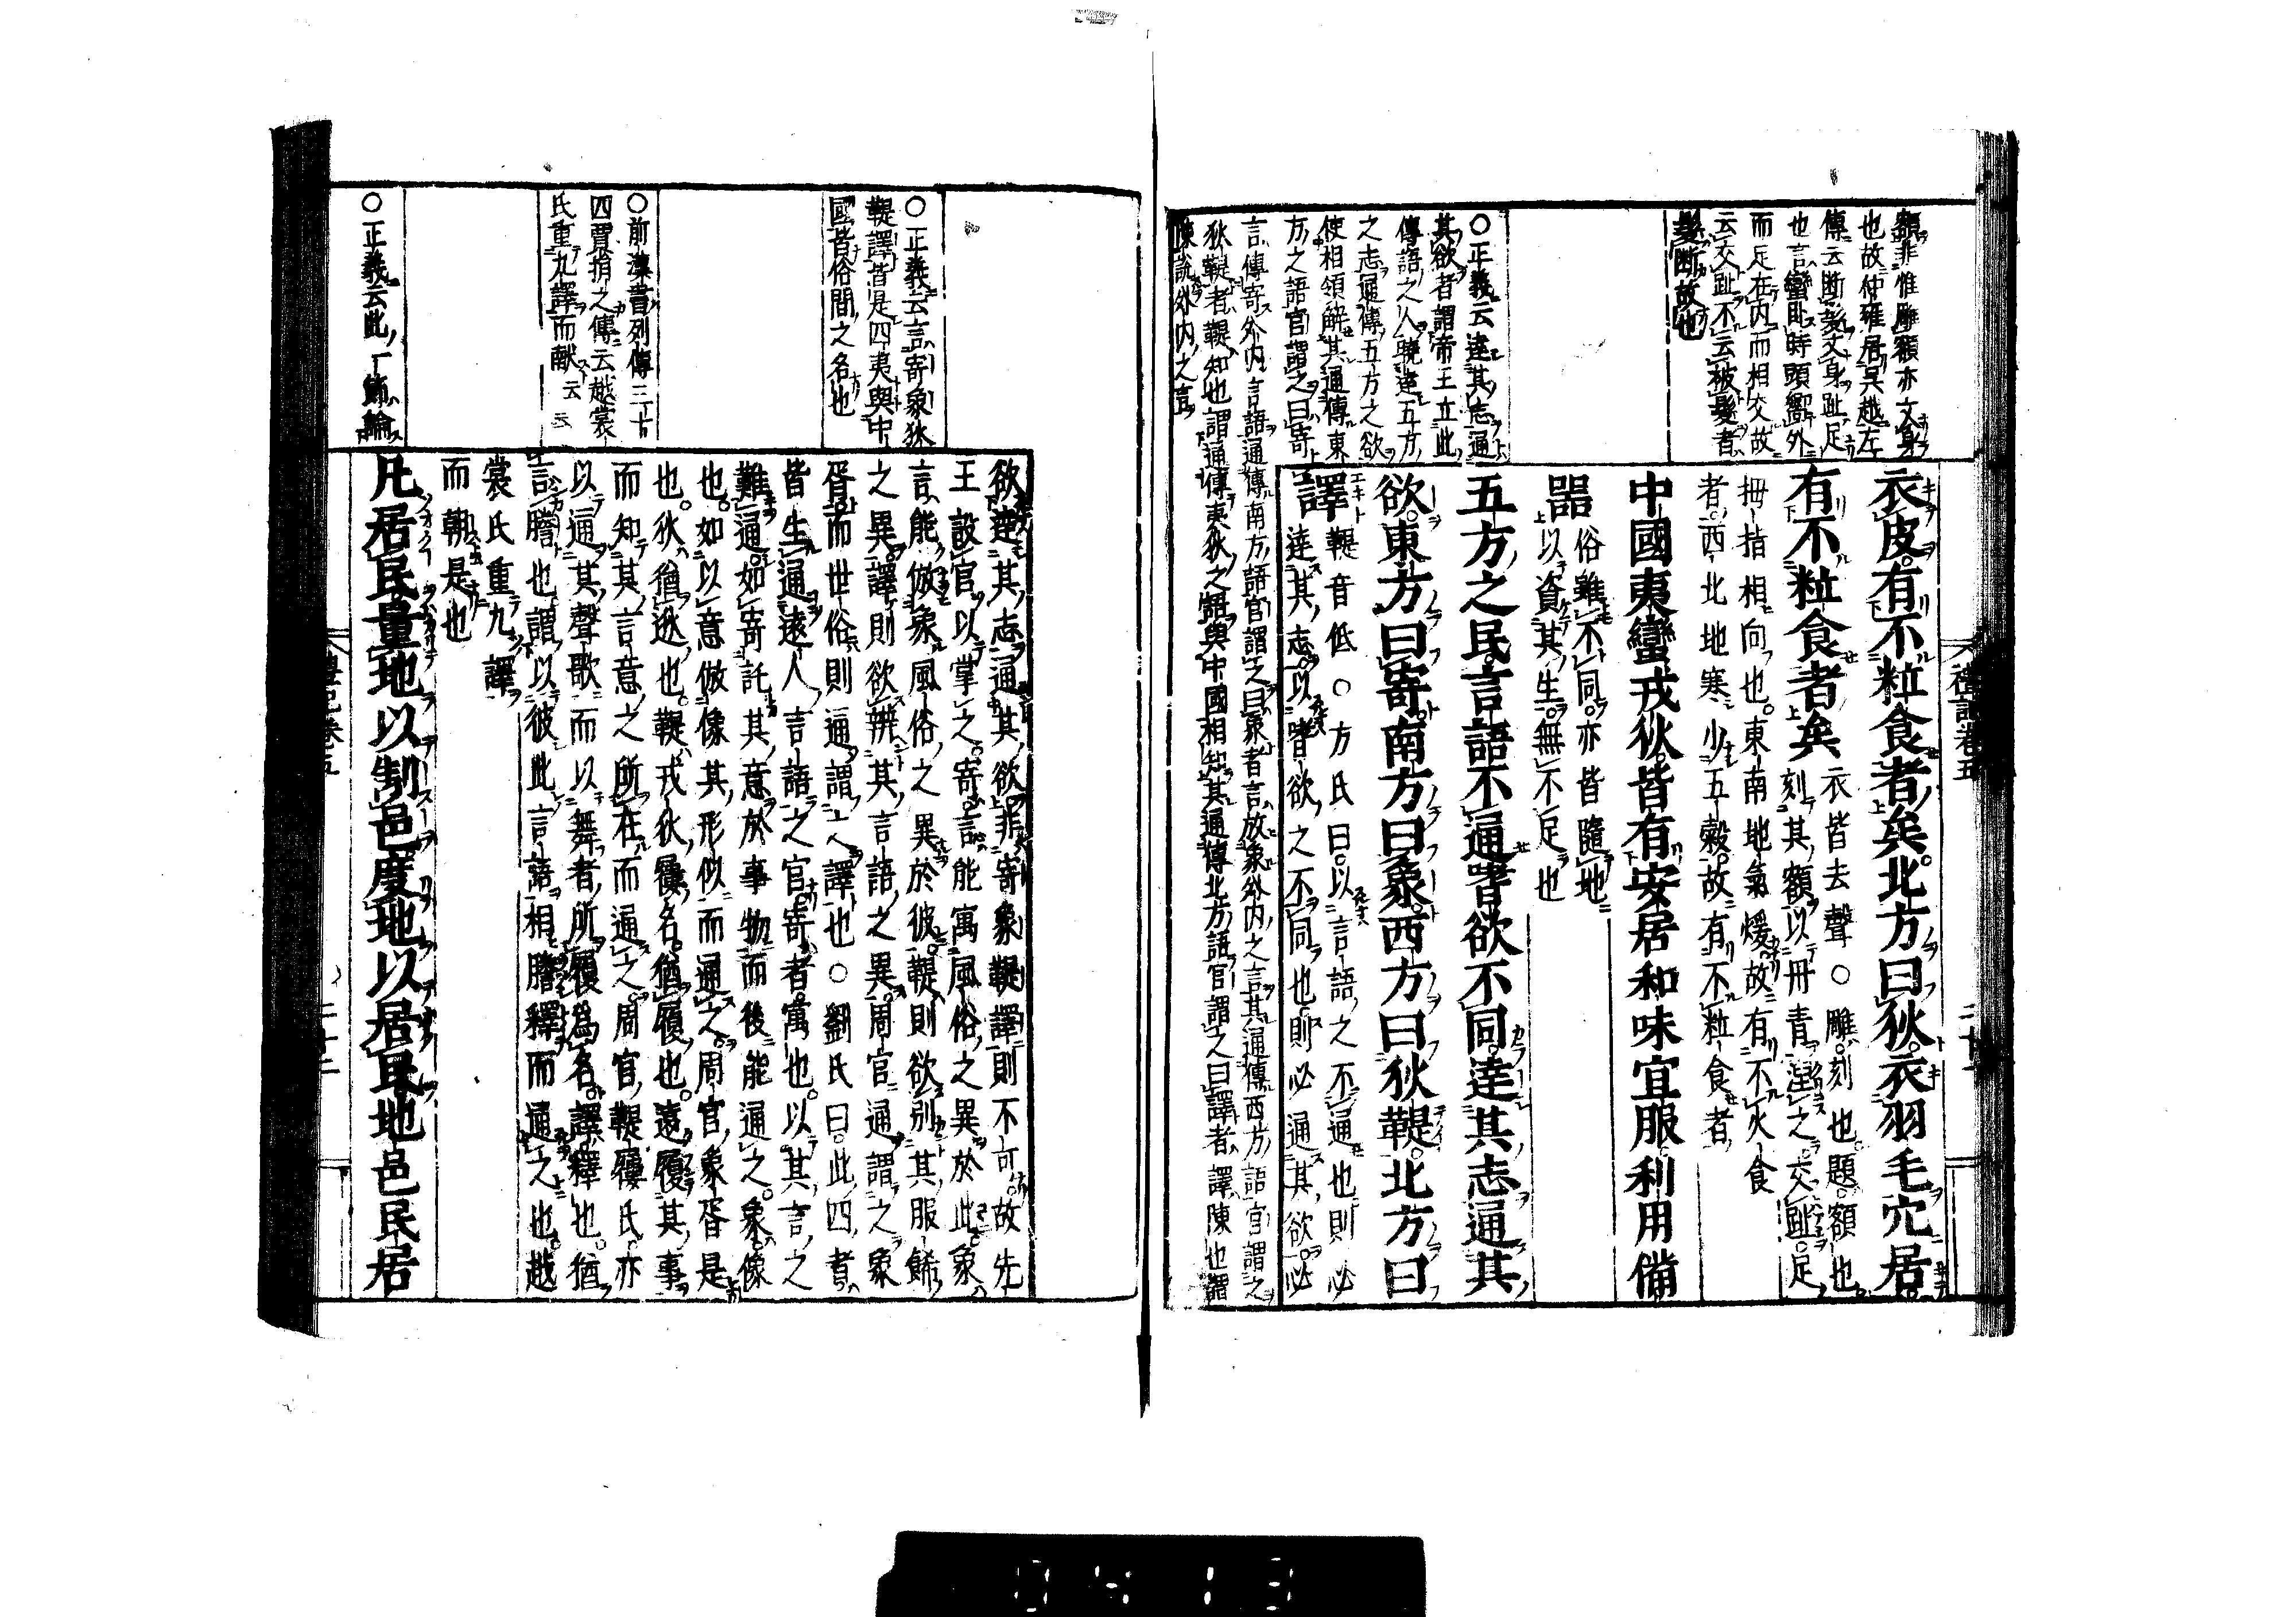 額非惟雕額亦文身
也故仲雍居呉越左
傳云断髮文身趾足
也言蠻臥時頭嚮外
而足在内而相交故
云交趾不云被髮者
髮断故也
衣皮有不粒食者矣北方曰狄衣羽毛穴居
有不粒食者矣
衣皆去聲○雕刻也題額也
刻其額以丹青涅之交趾足
拇指相向也東南地氣煖故有不火食
者西北地寒少五穀故有不粒食者
中國夷蠻戎狄皆有安居和味宜服利用備
噐
俗雖不同亦皆隨地
以資其生無不足也
○正義云達其志通
其欲者謂帝王立此
傳語之人曉達五方
之志通傳五方之欲
使相領解其通傳東
方之語官謂之曰寄
言傳寄外内言語通傳南方語官謂之曰象者言放象外内之言其通傳西方語官謂之
狄鞮者鞮知也謂通傳夷狄之語與中國相知其通傳北方語官謂之曰譯者譯陳也謂
陳説外内之言
五方之民言語不通嗜欲不同達其志通其
欲東方曰寄南方曰象西方曰狄鞮北方曰
譯
鞮音低○方氏曰以言語之不通也則必
達其志以嗜欲之不同也則必通其欲必
禮記卷五
○正義云言寄象狄
鞮譯皆是四夷與中
國皆俗間之名也
○前漢書列傳三十
四賈捐之傳云越裳
氏重九譯而献云云
○正義云此一節論
欲達其志通其欲非寄象鞮譯則不可故先
王設官以掌之寄言能寓風俗之異於此象
言能倣象風俗之異於彼鞮則欲别其服餙
之異譯則欲辨其言語之異周官通謂之象
胥而世俗則通謂之譯也○劉氏曰此四者
皆主通遠人言語之官寄者寓也以其言之
難通如寄託其意於事物而後能通之象像
也如以意倣像其形似而通之周官象胥是
也狄猶逖也鞮戎狄屨名猶履也遠履其事
而知其言意之所在而通之周官鞮鞻氏亦
以通其聲歌而以舞者所履爲名譯釋也猶
言謄也謂以彼此言語相謄釋而通之也越
裳氏重九譯
而朝是也
凡居民量地以制邑度地以居民地邑民居
禮記卷五
二十二